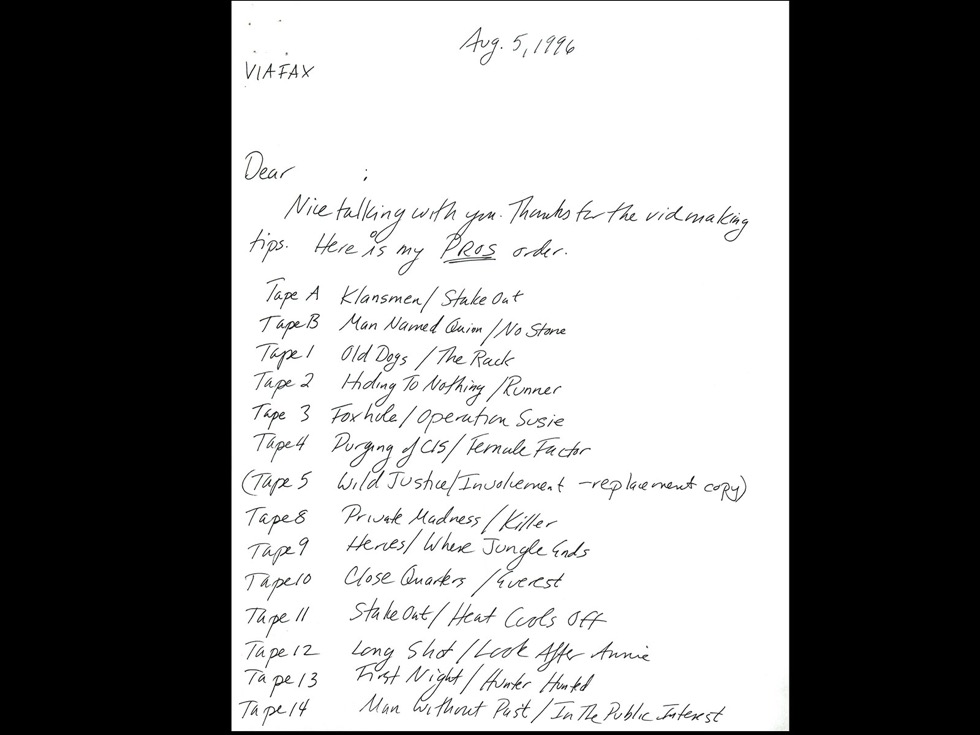 Aug. 5, 1996
VIA FAX
Dear :
Nice talking with you. Thanks for the vid making
tips. Here is my PROS order.
Tape A Klansmen / Stake Out
Tape B Man Named Quinn / No Stone
Tape 1 Old Dogs / The Rack
Tape 2 Hiding To Nothing / Runner
Tape 3 Foxhole / Operation Susie
Tape 4 Purging of CI5 / Female Factor
(Tape 5 Wild Justice / Involvement - replacement copy)
Tape 8 Private Madness / Killer
Tape 9 Heroes / Where Jungle Ends
Tape 10 Close Quarters / Everest
Tape 11 Stake Out / Heat Cools Off
Tape 12 Long Shot / Look After Annie
Tape 13 First Night / Hunter Hunted
Tape 14 Man Without Past / In The Public Interest